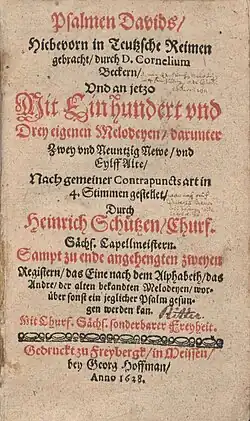 Psalmen Davids/
Hiebevorn in Teutzsche Reimen
gebracht/ durch D. Cornelium
Beckern/
Und an jetzo
Mit Ein hundert vnd
Drey eigenen Melodeyen/ darunter
Zwey vnd Neuntzig Newe/ vnd
Eylff Alte/
Nach gemeiner Contrapuncts art in
4. Stimmen gestellet/
Durch
Heinrich Schützen/ Churf.
Sächs. Capellmeistern.
Sampt zu ende angehengten zweyen
Registern/ das Eine nach dem Alphabeth/ das
Andre, der alten bekandten Melodeyen/ wor-
über sonst ein jeglicher Psalm gesun-
gen werden kan.
Ritter.
Mit Churf. Sächs. sonderbarer Freyheit.
Gedruckt zu Freybergk/ in Meissen/
bey Georg Hoffman/
Anno 1628.